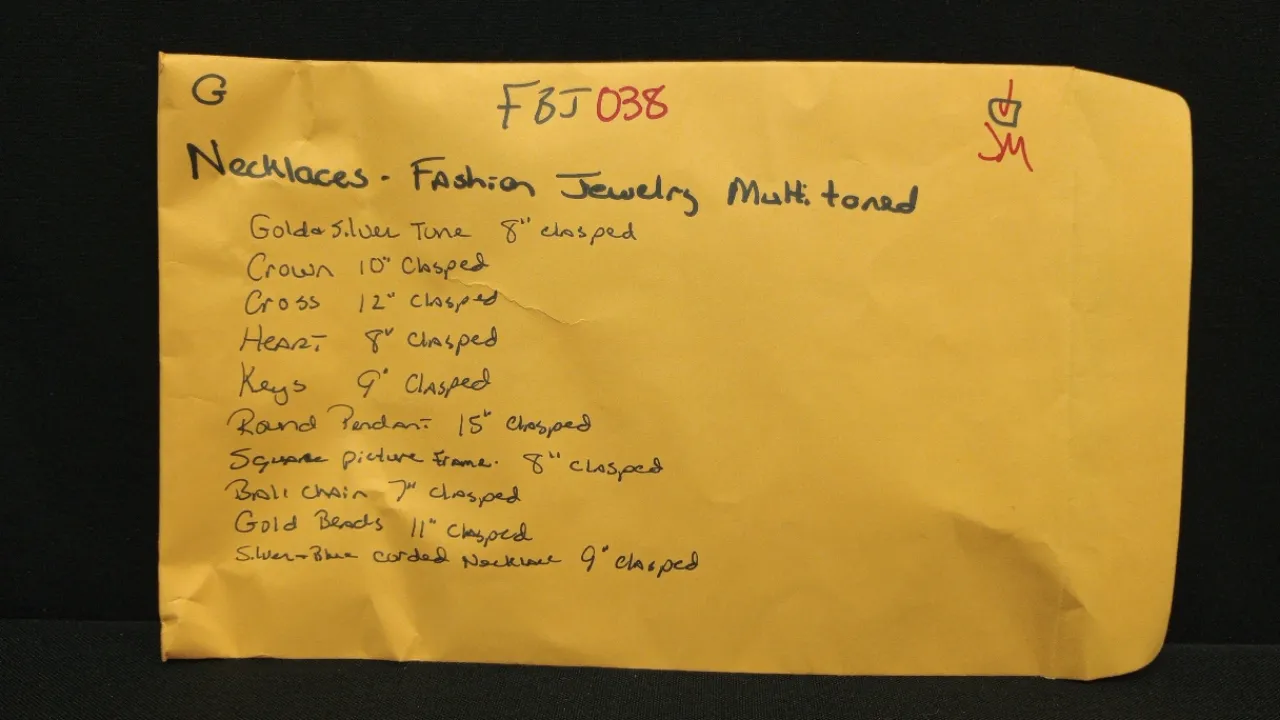 G
FBJ 038
JM
Necklaces - Fashion Jewelry Multi toned
Gold & Silver Tune 8" clasped
Crown 10" Clasped
Cross 12" clasped
Heart 8" clasped
Keys 9" clasped
Round Pendant 15" clasped
Square picture frame. 8" clasped
Ball chain 7" clasped
Gold Beads 11" clasped
Silver + Blue corded Necklace 9" clasped